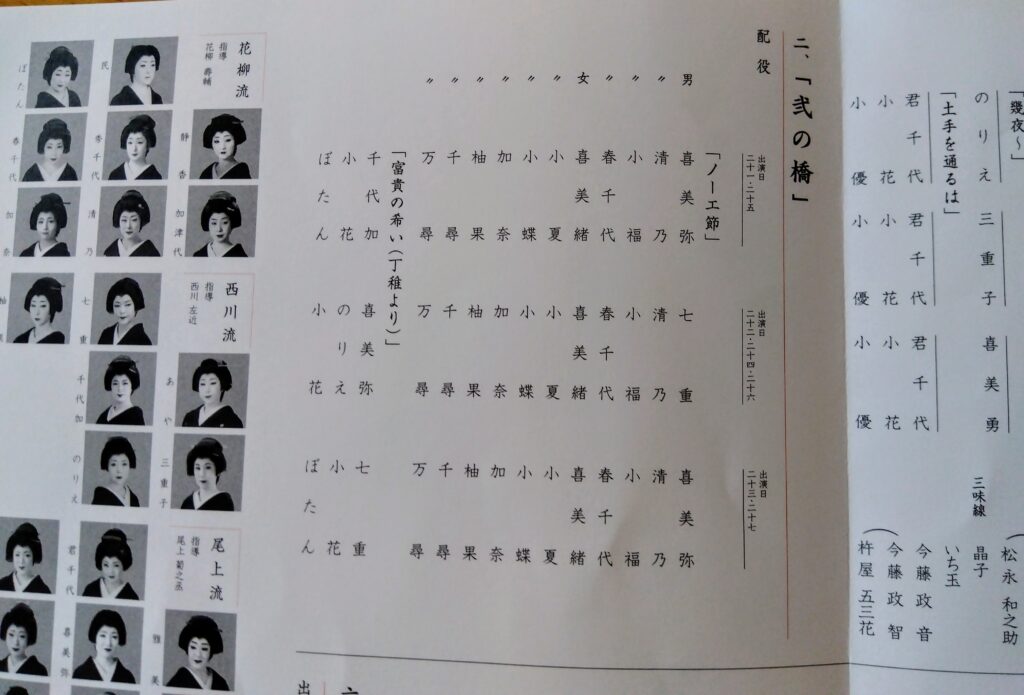 「幾夜～」
のりえ 三重子 喜美勇
「土手を通るは」
君千代 君千代 君千代
小花 小花 小花
小優 小優 小優
三味線
松永和之助
晶子
いち玉
今藤政音
今藤政智
杵屋五三花
二、「弐の橋」
配役
出演日
二十一・二十五
出演日
二十二・二十四・二十六
出演日
二十三・二十七
「ノーエ節」
男 喜美弥 七重 喜美弥
〃 清乃 清乃 清乃
〃 小福 小福 小福
〃 春千代 春千代 春千代
女 喜美緒 喜美緒 喜美緒
〃 小夏 小夏 小夏
〃 小蝶 小蝶 小蝶
〃 加奈 加奈 加奈
〃 柚果 柚果 柚果
〃 千尋 千尋 千尋
〃 万尋 万尋 万尋
「富貴の希い（丁稚より）」
千代加 喜美弥 七重
小花 のりえ 小花
ぼたん 小花 ぼたん
花柳流
指導
花柳 壽輔
静香
加津代
民
秀千代
清乃
ぼたん
春千代
加奈
西川流
指導
西川 左近
あや
三重子
七重
千代加
のりえ
柚
尾上流
指導
尾上 菊之丞
雅美
君千代
喜美弥
出